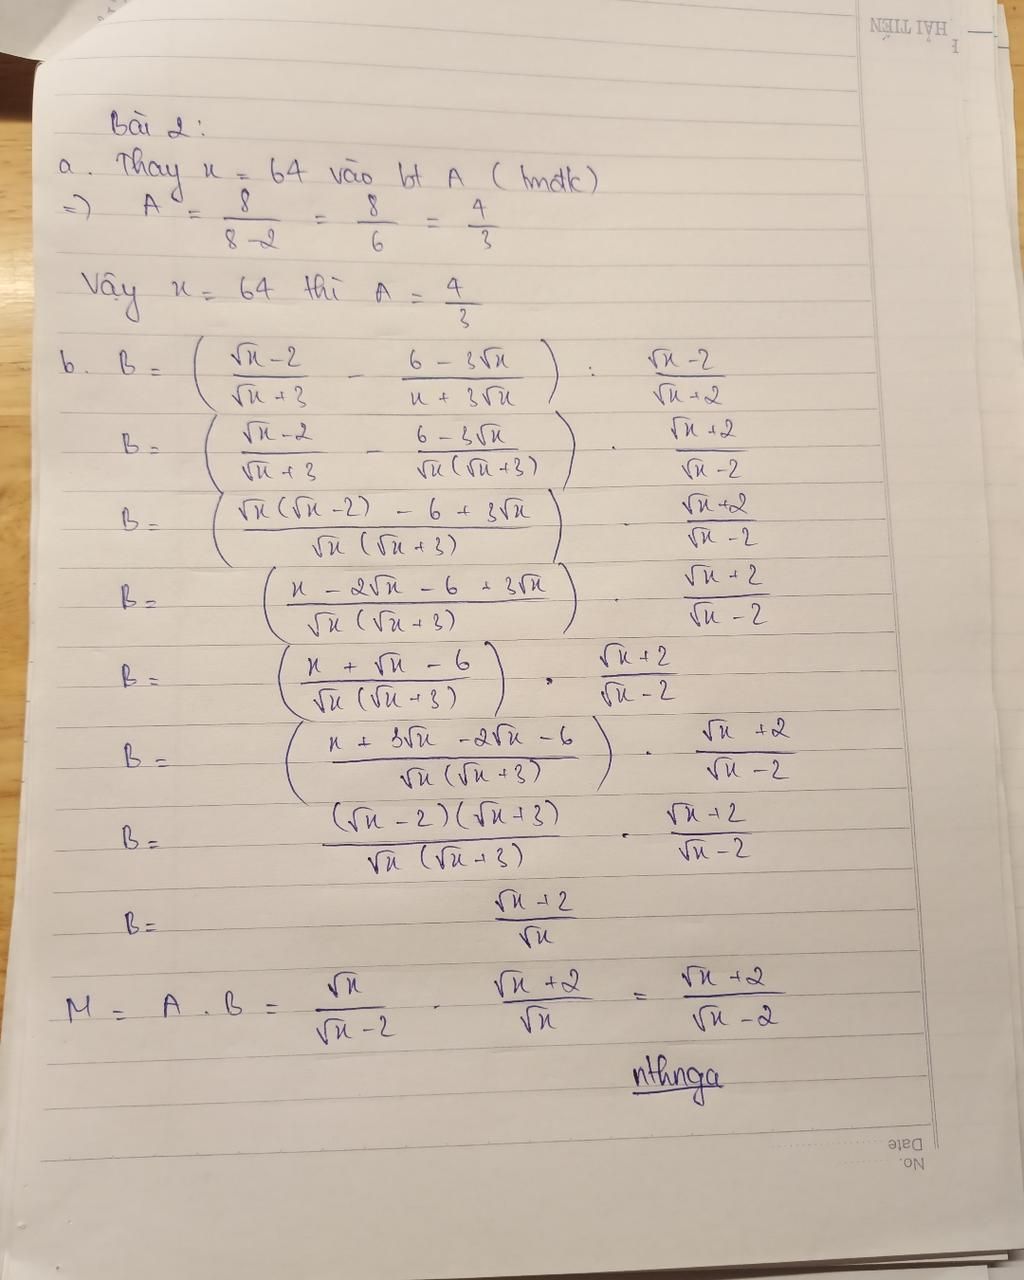 HẢI TIẾN
Bài 2:
a. Thay x = 64 vào bt A (tmđk)
=> A = 8/(8-2) = 8/6 = 4/3
Vậy x = 64 thì A = 4/3
b. B = ((√x-2)/(√x+3) - (6-3√x)/(x+3√x)) : (√x-2)/(√x+2)
B = ((√x-2)/(√x+3) - (6-3√x)/(√x(√x+3))) . (√x+2)/(√x-2)
B = ((√x(√x-2) - 6 + 3√x)/(√x(√x+3))) . (√x+2)/(√x-2)
B = ((x - 2√x - 6 + 3√x)/(√x(√x+3))) . (√x+2)/(√x-2)
B = ((x + √x - 6)/(√x(√x+3))) . (√x+2)/(√x-2)
B = ((x + 3√x - 2√x - 6)/(√x(√x+3))) . (√x+2)/(√x-2)
B = ((√x-2)(√x+3))/(√x(√x+3)) . (√x+2)/(√x-2)
B = (√x+2)/√x
M = A . B = √x/(√x-2) . (√x+2)/√x = (√x+2)/(√x-2)
nthnga
Date
No.